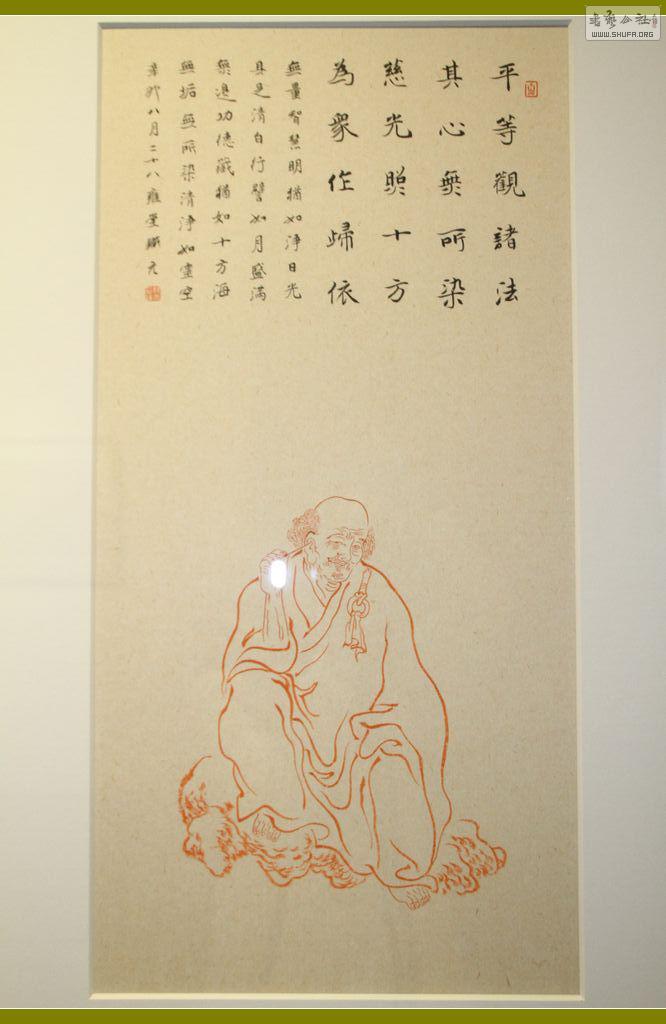 平等觀諸法
其心無所染
慈光照十方
為眾作歸依
無量智慧明猶如淨日光
具足清白行譬如月盛滿
無邊功德藏猶如十方海
無垢無所染清淨如虛空
辛卯八月二十八雍堂
書藝公社
WWW.SHUFA.ORG